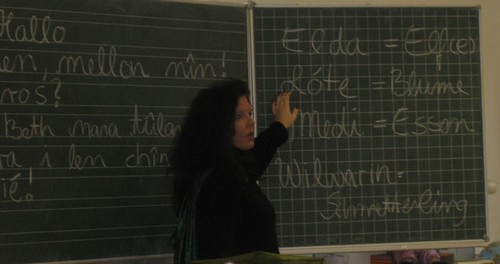 Hallo
en, mellon nîn!
ros?
Beth mara tûla
a i len chîn
ié!
Elda = Elf(e)
Lóte = Blume
Medi = Essen
Wilwarin =
Schmetterling